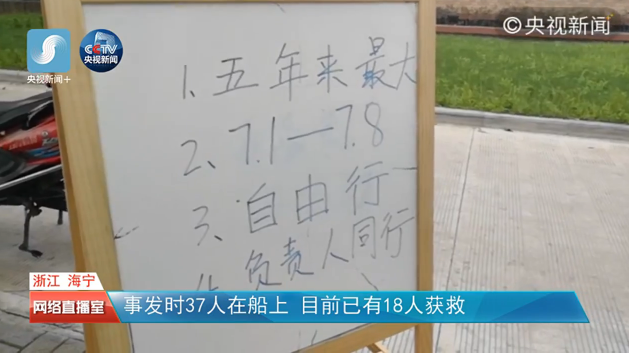 ©央视新闻
央视新闻+
CCTV
央视新闻
1、五年来最大
2、7.1—7.8
3、自由行
4、负责人同行
浙江 海宁
网络直播室
事发时37人在船上 目前已有18人获救